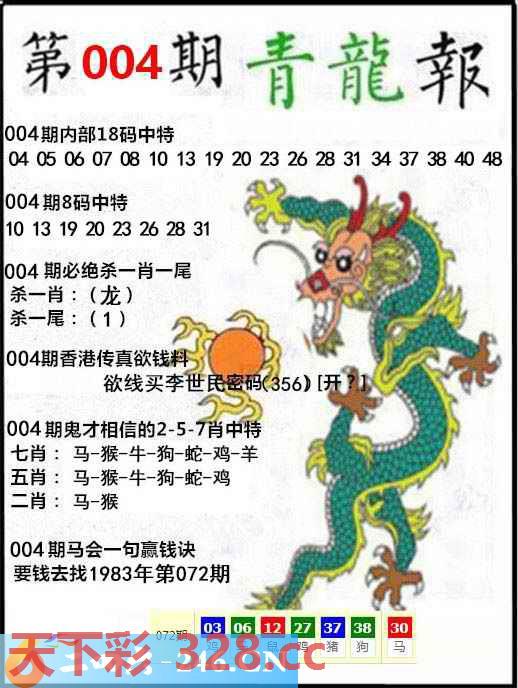 第004期青龍報
004期内部18码中特
04 05 06 07 08 10 13 19 20 23 26 28 31 34 37 38 40 48
004期8码中特
10 13 19 20 23 26 28 31
004期必绝杀一肖一尾
杀一肖：(龙)
杀一尾：(1)
004期香港传真欲钱料
欲线买李世民密码(356)[开?]
004期鬼才相信的2-5-7肖中特
七肖：马-猴-牛-狗-蛇-鸡-羊
五肖：马-猴-牛-狗-蛇-鸡
二肖：马-猴
004期马会一句赢钱诀
要钱去找1983年第072期
072期 03 06 12 27 37 38 30
鼠 猪 狗 马
天下彩-328.cc